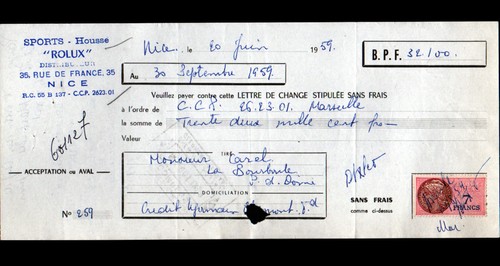 SPORTS - Housse
"ROLUX"
DISTRIBUTEUR
35, RUE DE FRANCE, 35
NICE
R.C. 55 B 137 - C.C.P. 2623.01
Nice, le 20 Juin 1959.
B.P.F. 32100.
Au 30 Septembre 1959.
Veuillez payer contre cette LETTRE DE CHANGE STIPULÉE SANS FRAIS
à l'ordre de C.C.P. 26.23.01. Marseille
la somme de Trente deux mille cent frs
Valeur
60127
ACCEPTATION ou AVAL
TIRÉ
Monsieur Carel
La Bourboule
P. d. Dome
DOMICILIATION
Credit Lyonnais
N° 259
SANS FRAIS
comme ci-dessus
7
FRANCS